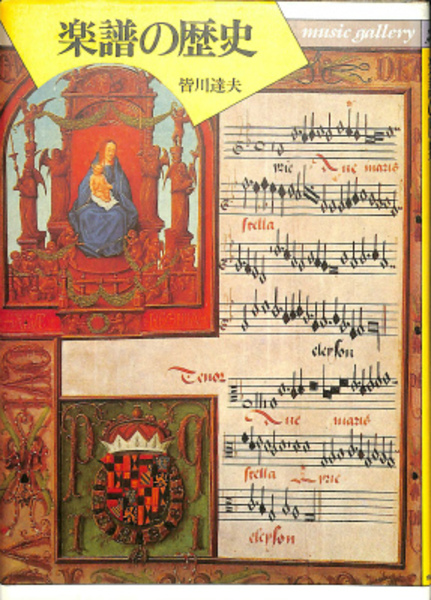 楽譜の歴史
皆川達夫
music gallery
rie Aue maris
stella
eleyson
Tenor
Aue maris
stella rie
eleyson